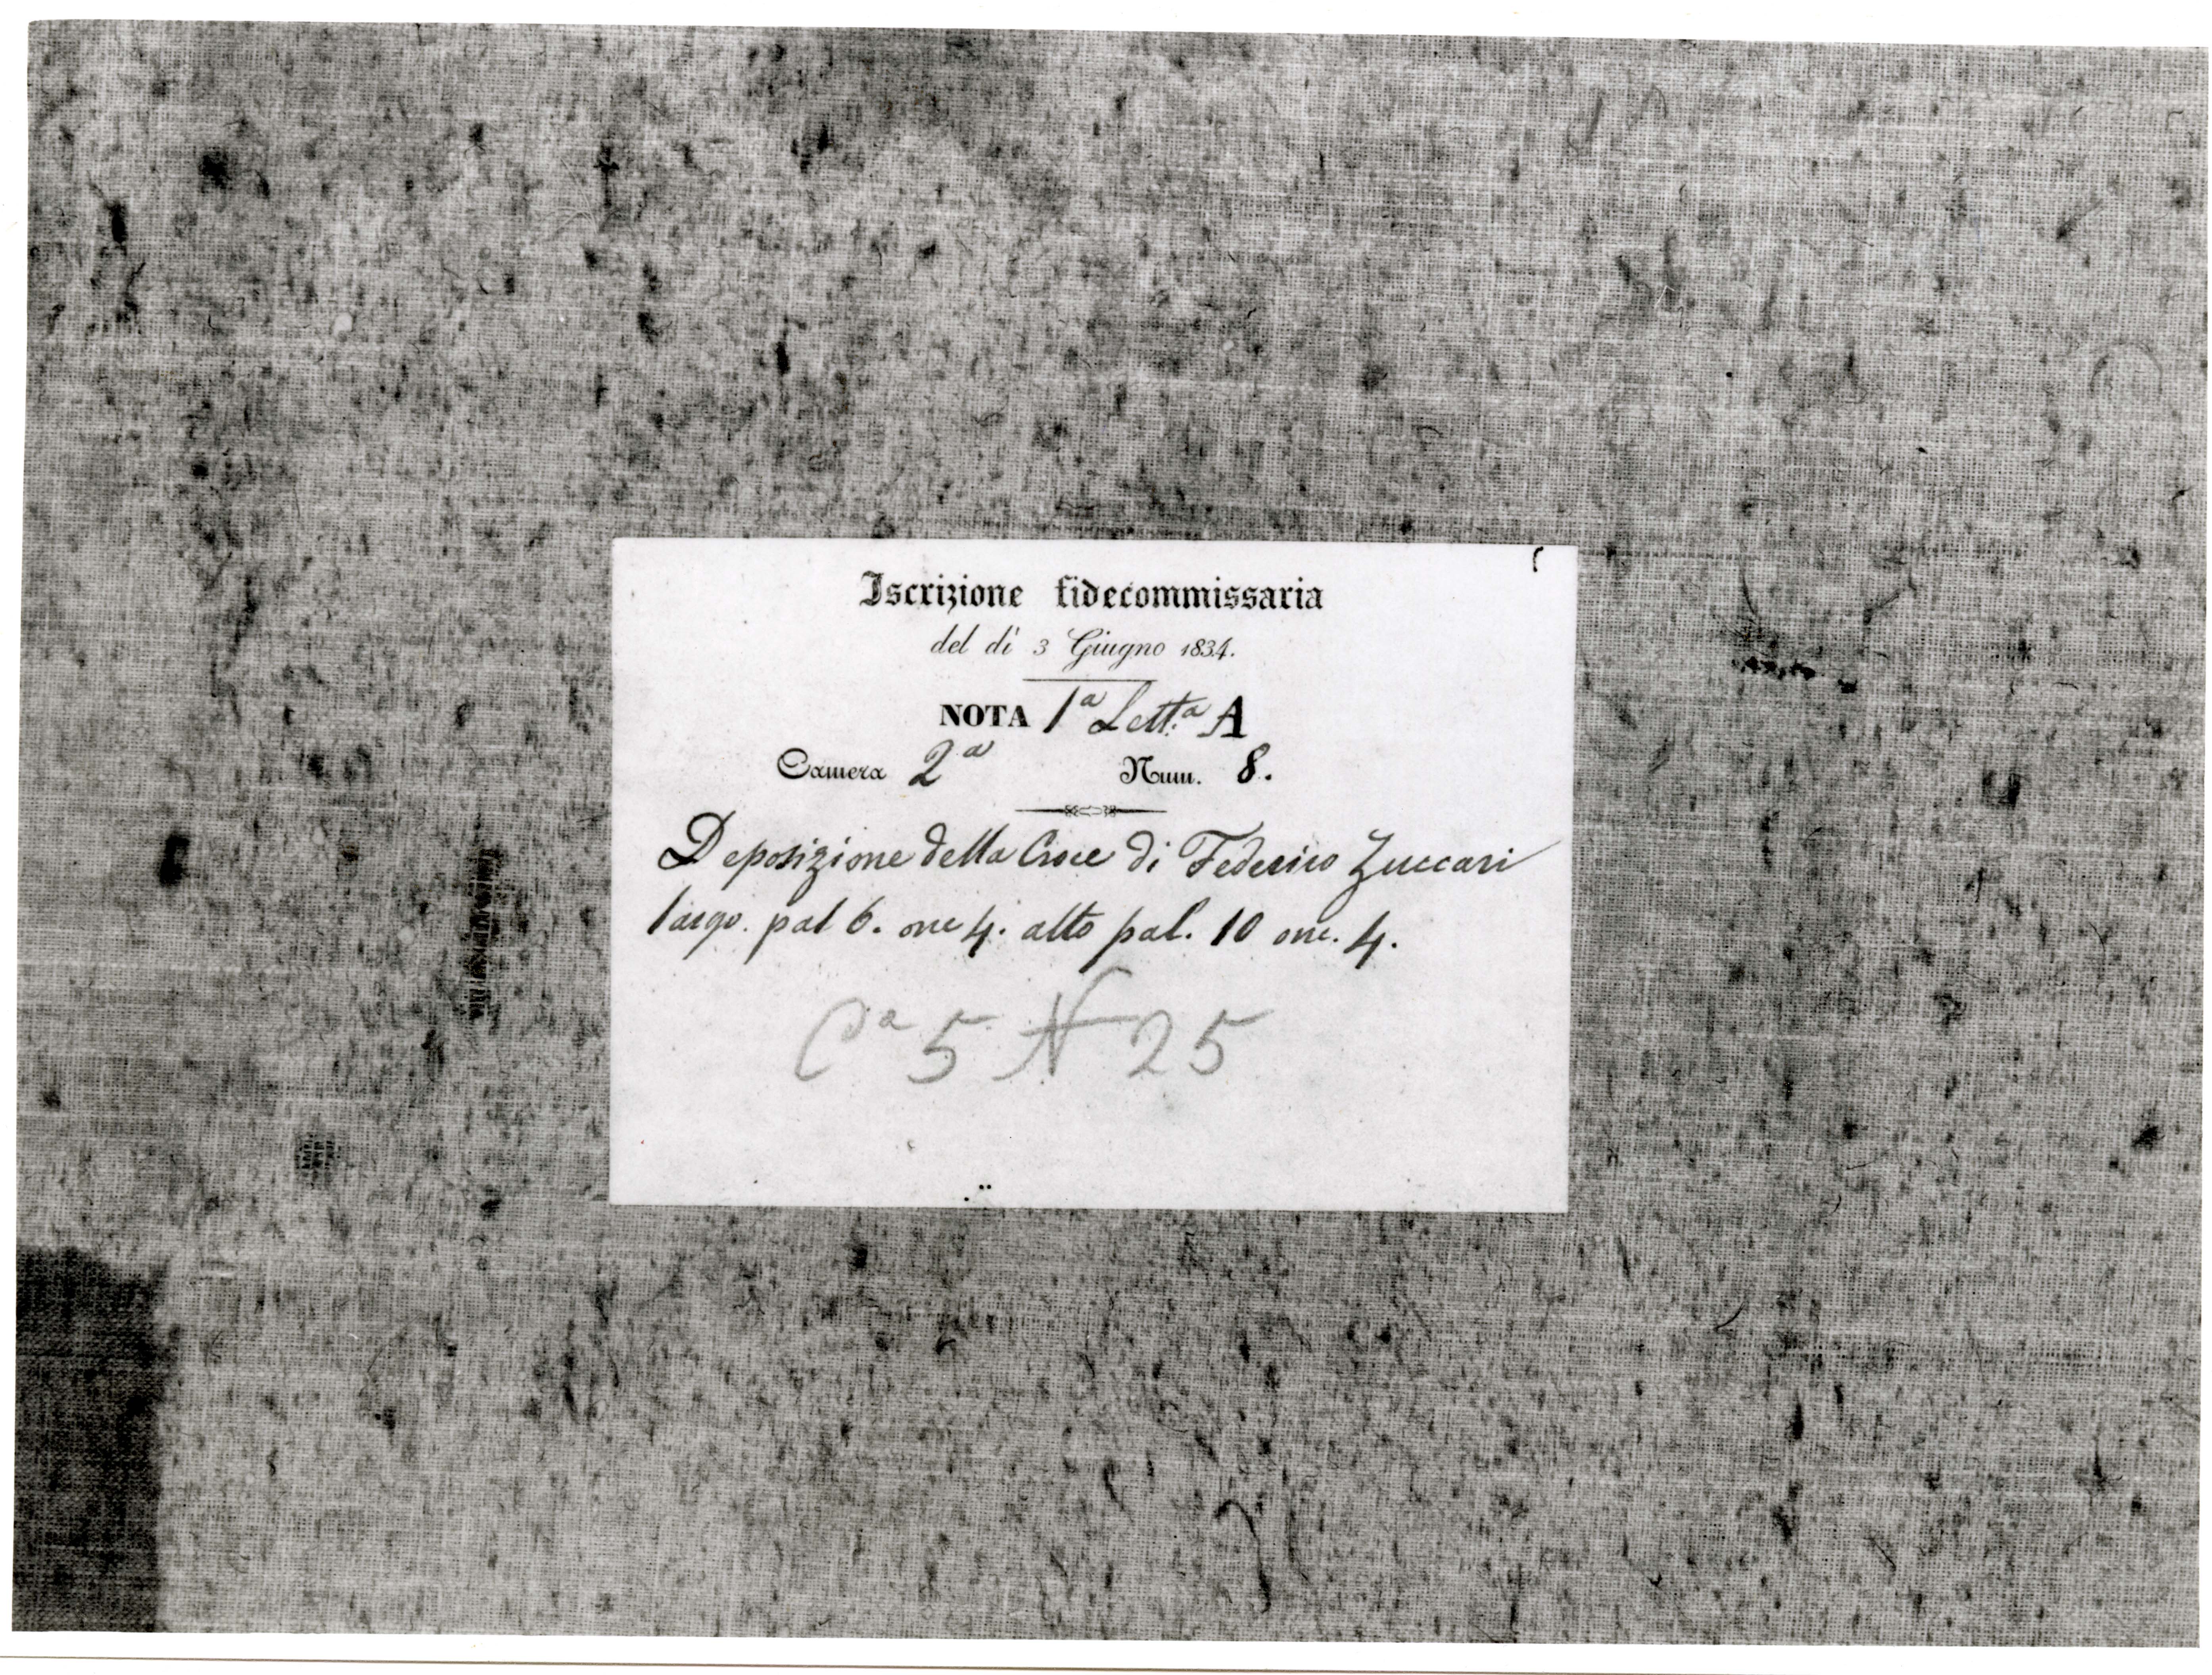 Iscrizione fidecommissaria
del dì 3 Giugno 1834.
NOTA 1ª Lett.ª A
Camera 2ª Num. 8.
Deposizione della Croce di Federico Zuccari
largo. pal 6. onc 4. alto pal. 10 onc. 4.
Cª 5 N 25